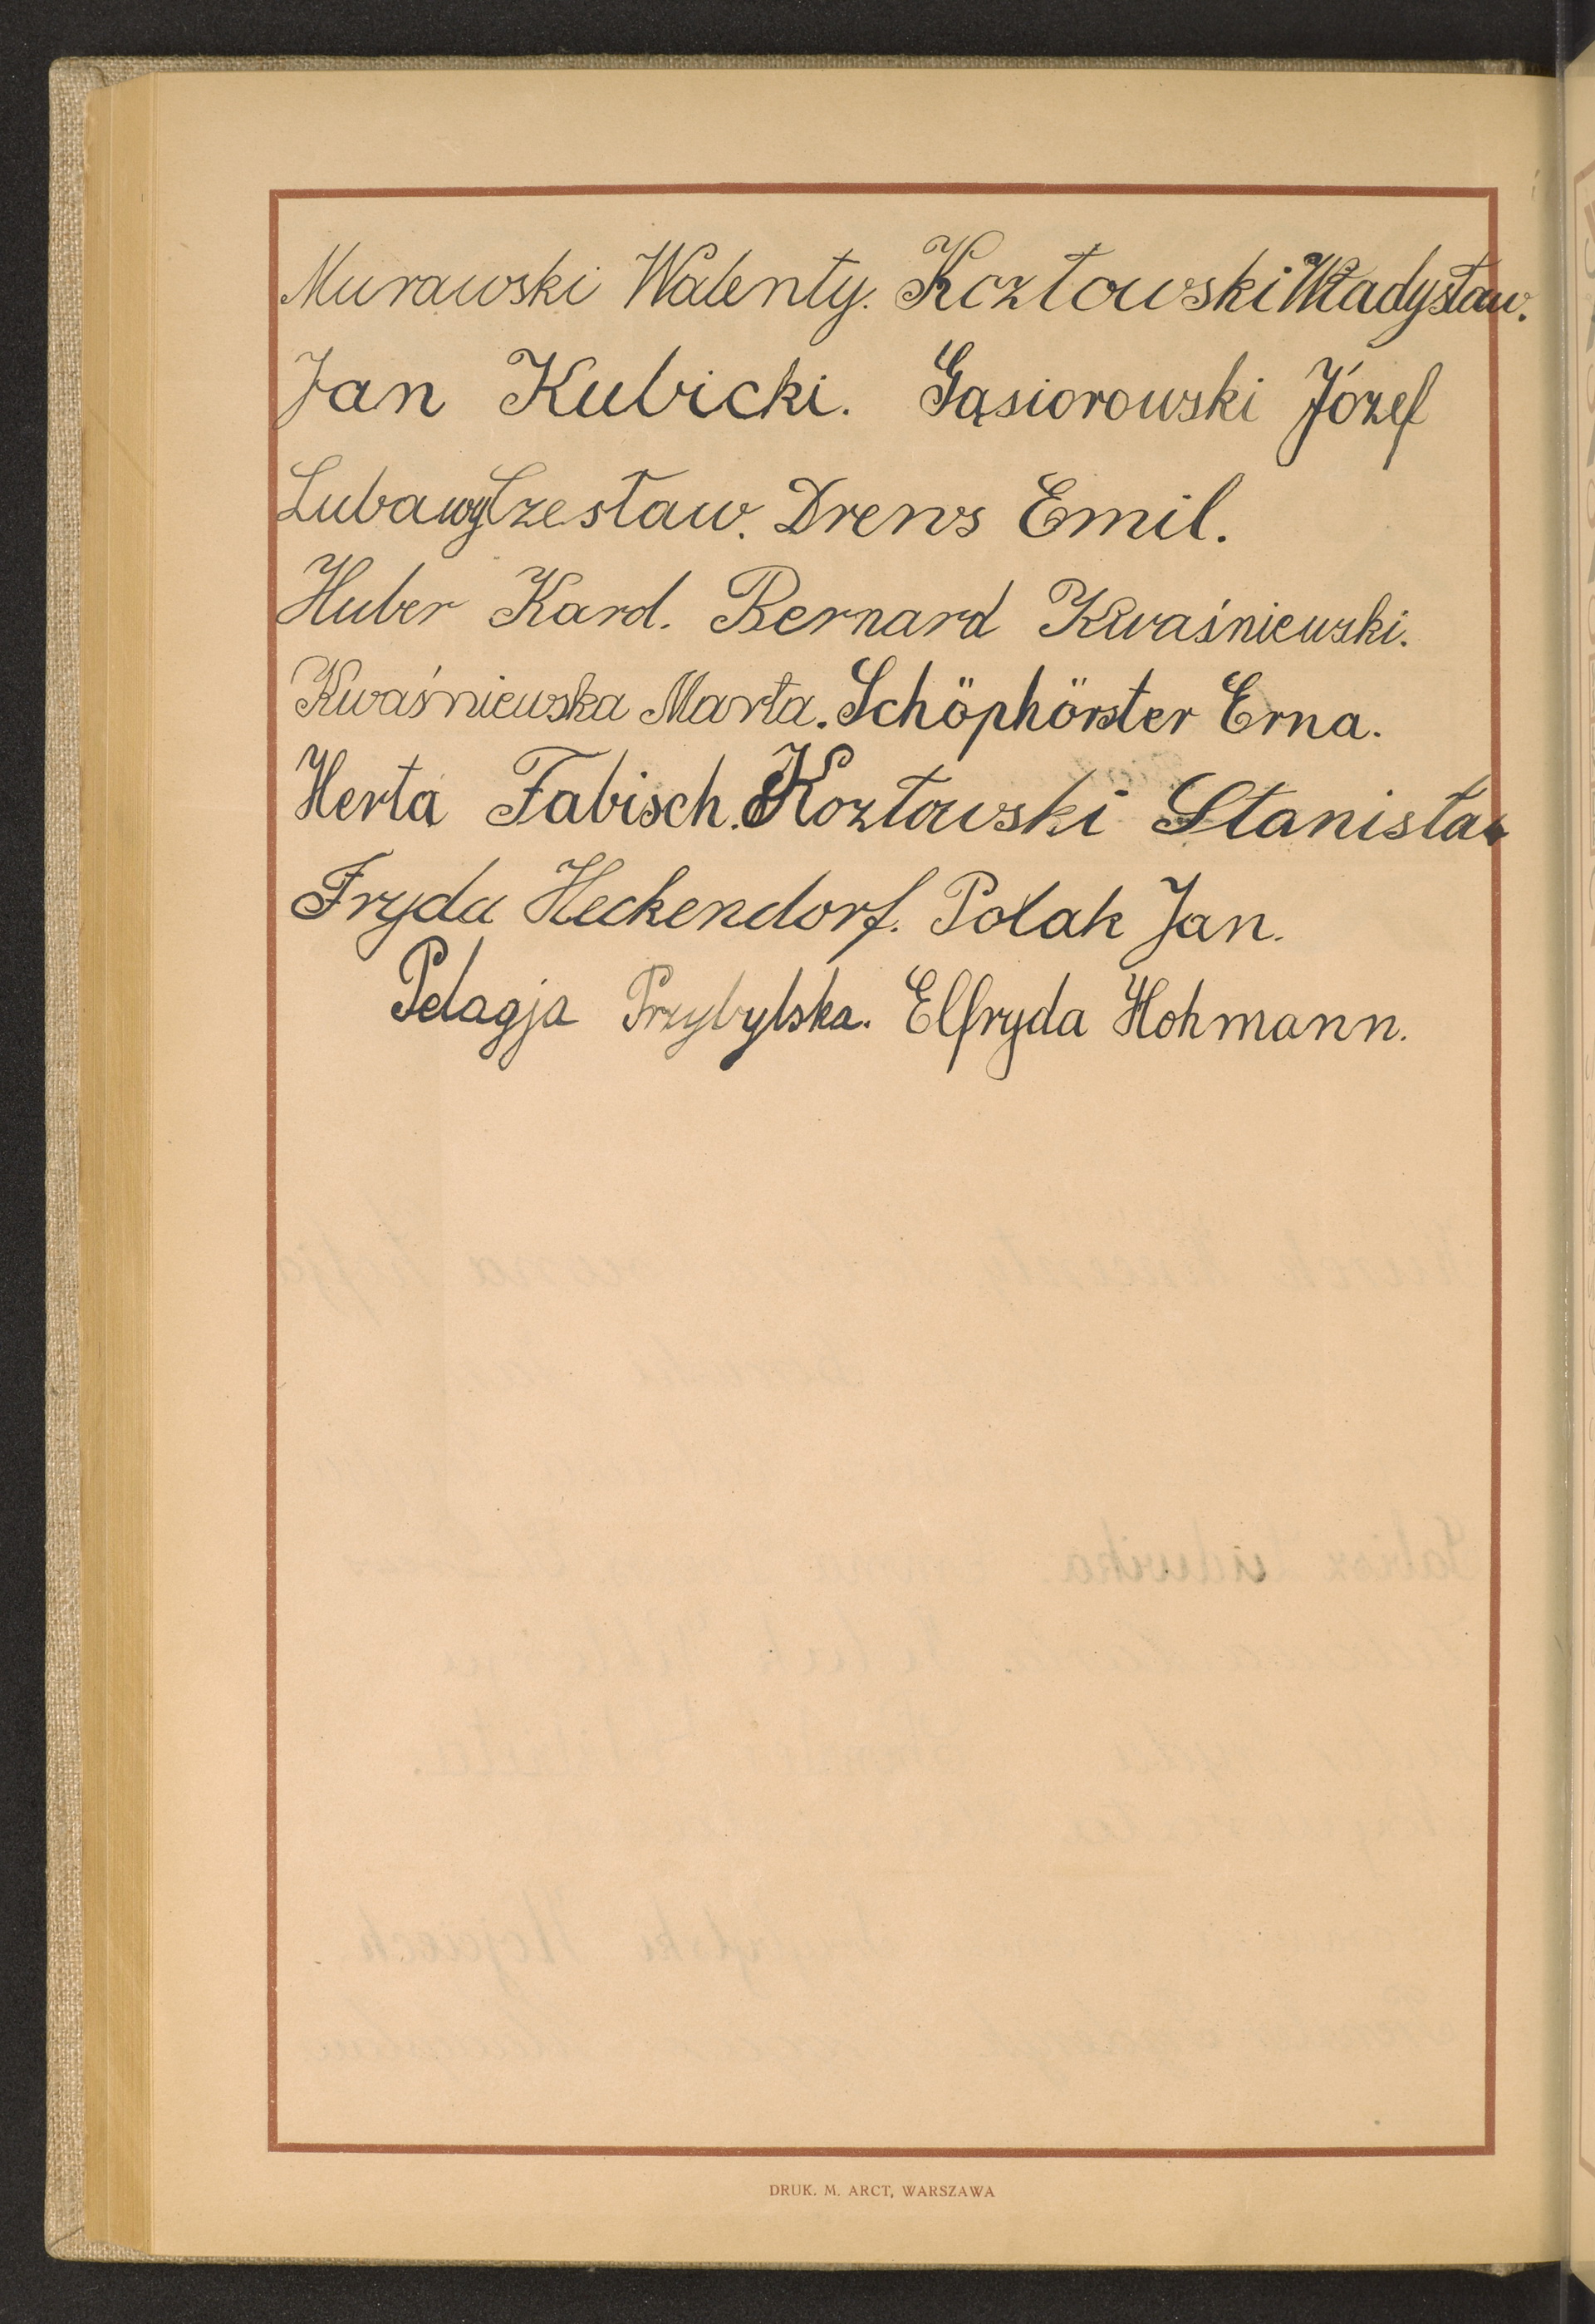 Murawski Walenty. Kozłowski Władysław.
Jan Kubicki. Gąsiorowski Józef
Lubawy Czesław. Drews Emil.
Huber Karol. Bernard Kwaśniewski.
Kwaśniewska Marta. Schöphörster Erna.
Herta Fabisch. Kozłowski Stanisław
Fryda Heckendorf. Polak Jan.
Pelagja Przybylska. Elfryda Hohmann.
DRUK. M. ARCT, WARSZAWA